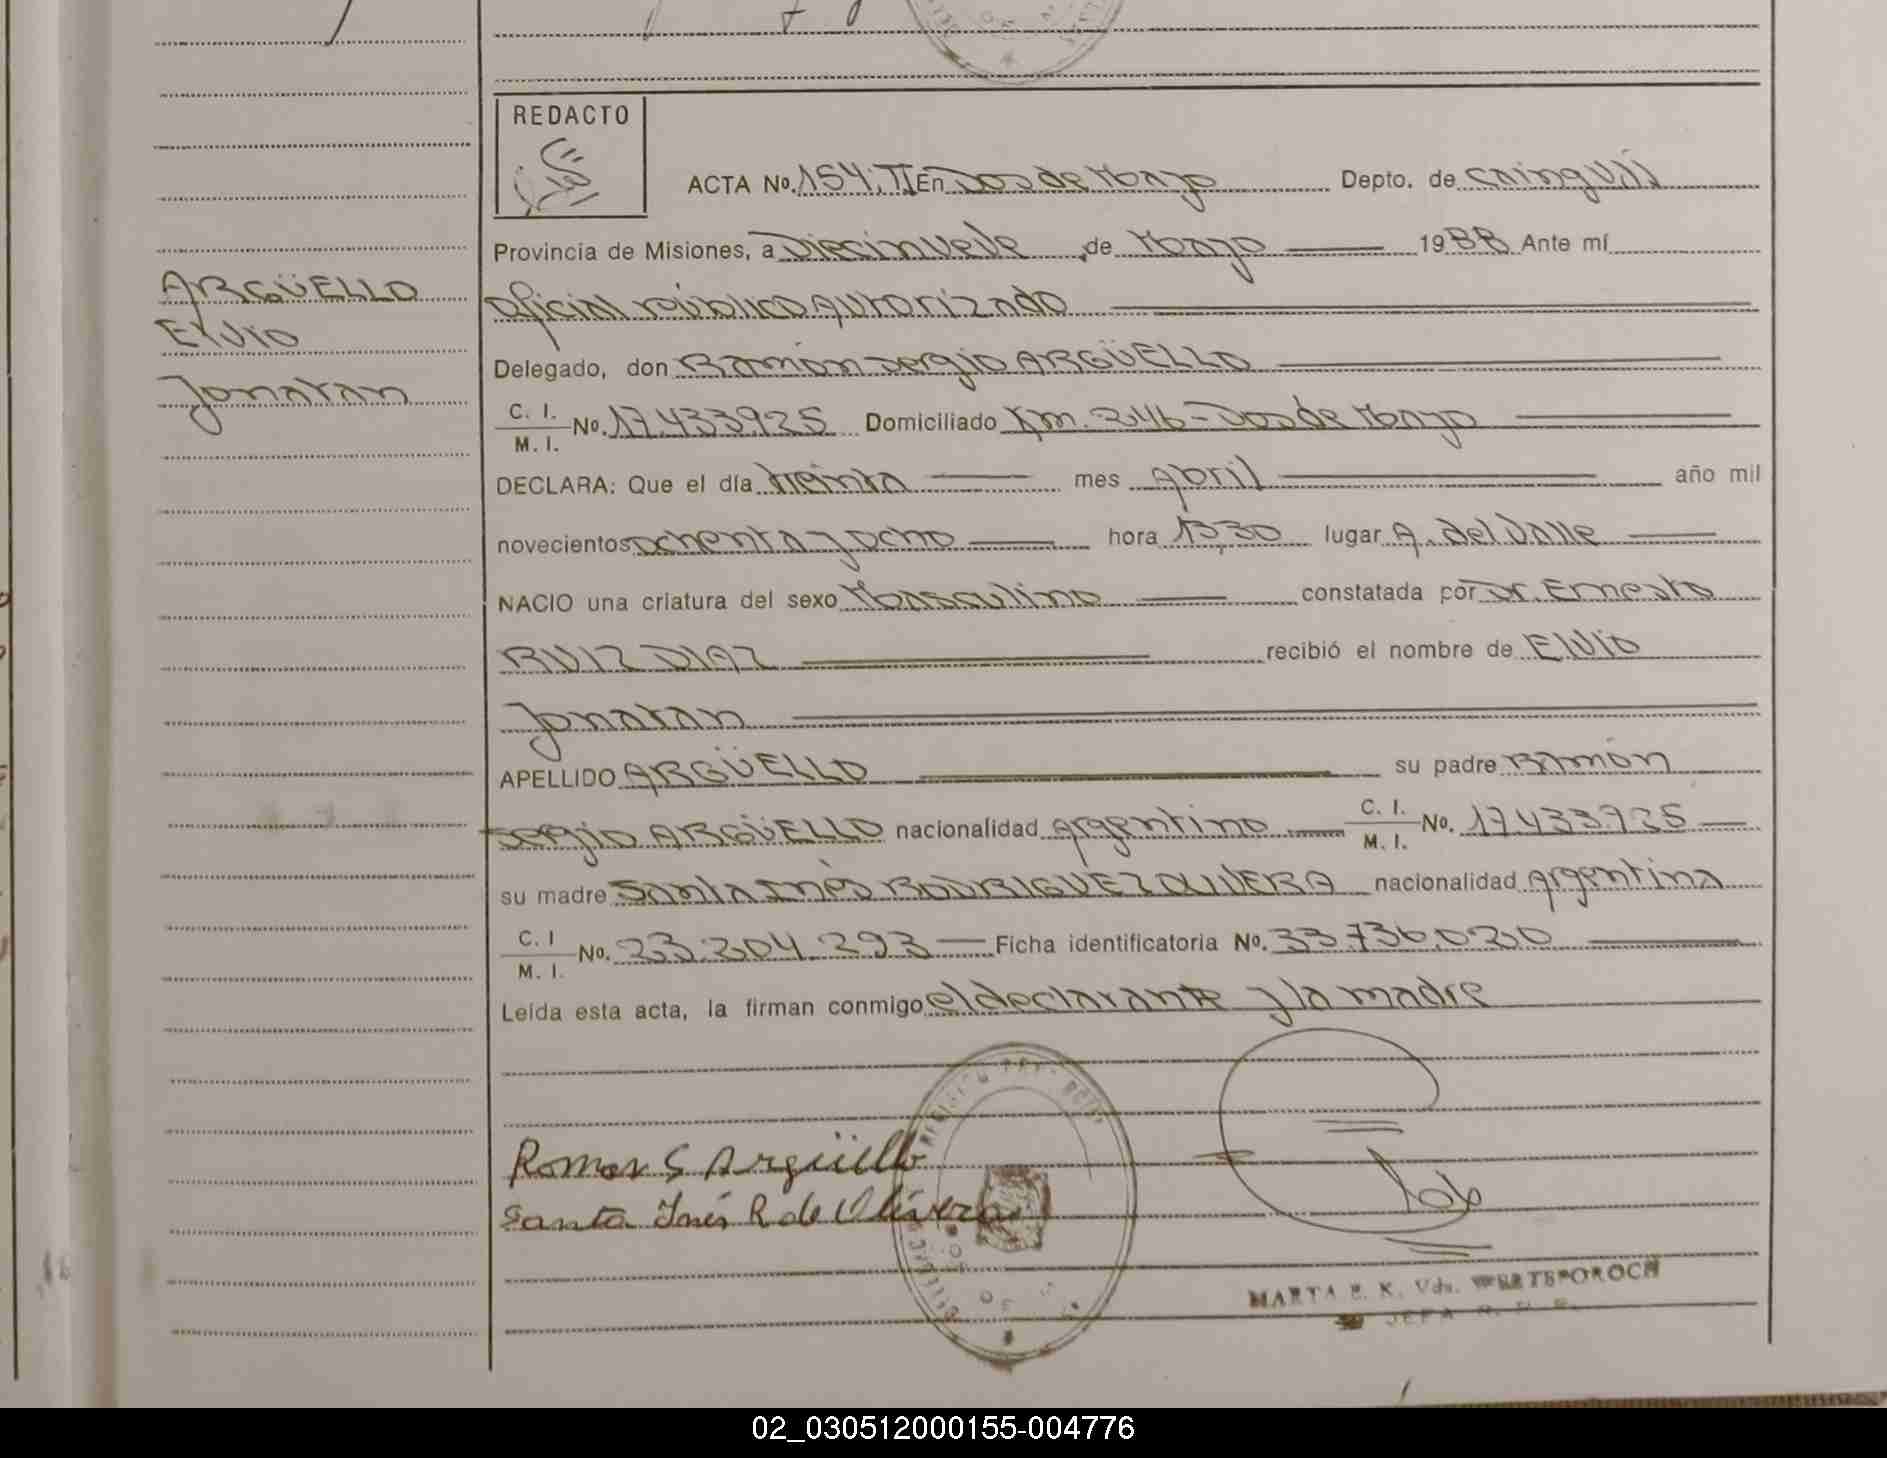 REDACTO
ACTA No. 154. TI En Dos de Mayo Depto. de Cainguás
Provincia de Misiones, a Diecinueve de Mayo 1988 Ante mí
Oficial Público Autorizado
ARGÜELLO
Elvio
Jonatan
Delegado, don Ramón Sergio ARGÜELLO
C. I.
M. I. No. 17.433.925 Domiciliado Km. 246 - Dos de Mayo
DECLARA: Que el día treinta mes Abril año mil
novecientos ochenta y ocho hora 13,30 lugar A. del Valle
NACIO una criatura del sexo Masculino constatada por Dr. Ernesto
RUIZ DIAZ recibió el nombre de Elvio
Jonatan
APELLIDO ARGÜELLO su padre Ramón
Sergio ARGÜELLO nacionalidad Argentino C. I.
M. I. No. 17.433.925
su madre Santa Inés RODRIGUEZ OLIVERA nacionalidad Argentina
C. I
M. I. No. 23.204.293 Ficha identificatoria No. 33.736.020
Leída esta acta, la firman conmigo el declarante y la madre
Ramon S Argüello
Santa Inés R de Olivera
MARTA E. K. Vda. WERTSPOROCH
JEFA R. P.
02_030512000155-004776